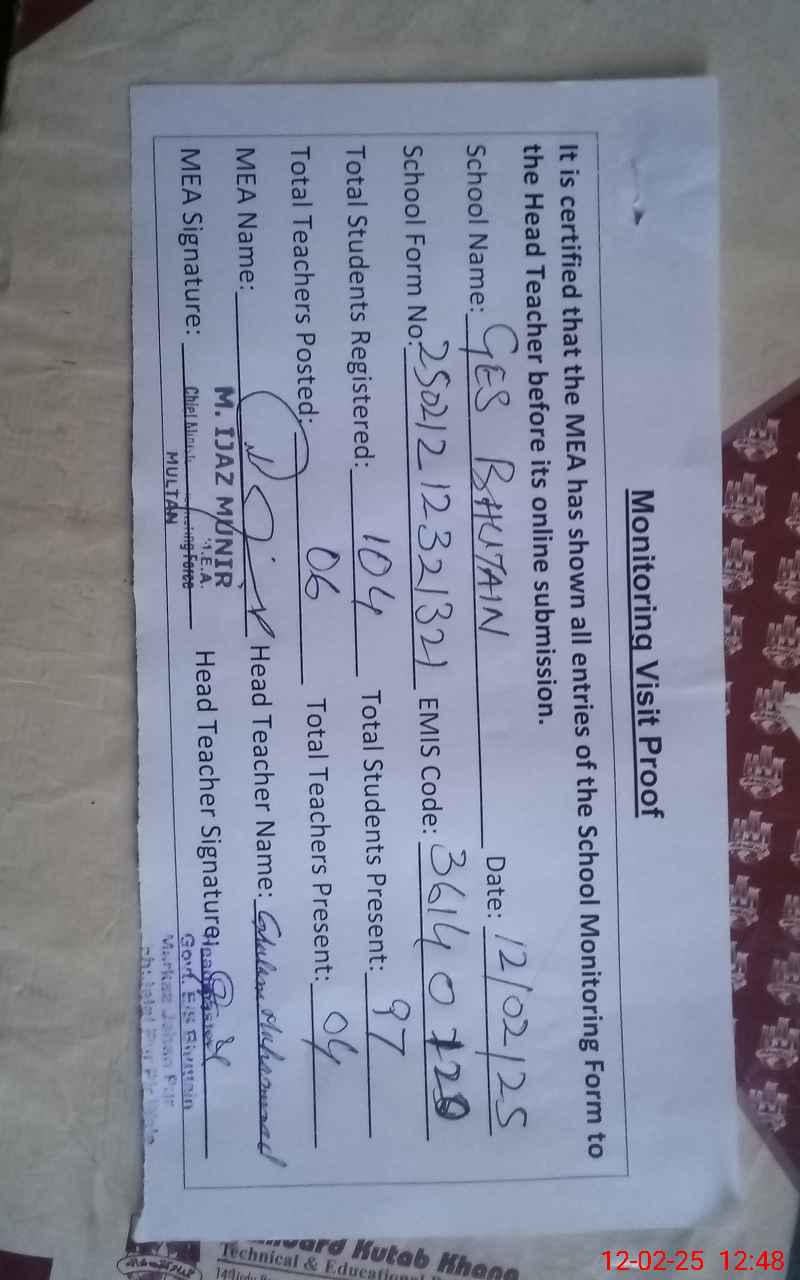 Monitoring Visit Proof
It is certified that the MEA has shown all entries of the School Monitoring Form to
the Head Teacher before its online submission.
School Name: GES BHUTAIN Date: 12/02/25
School Form No: 25021212321321 EMIS Code: 36140120
Total Students Registered: 104 Total Students Present: 97
Total Teachers Posted: 06 Total Teachers Present: 04
MEA Name: Head Teacher Name: Ghulam Muhammad
M. IJAZ MUNIR
M.E.A.
MEA Signature: Head Teacher Signature:
MULTAN
Kutab Khana
Technical & Educational
12-02-25 12:48